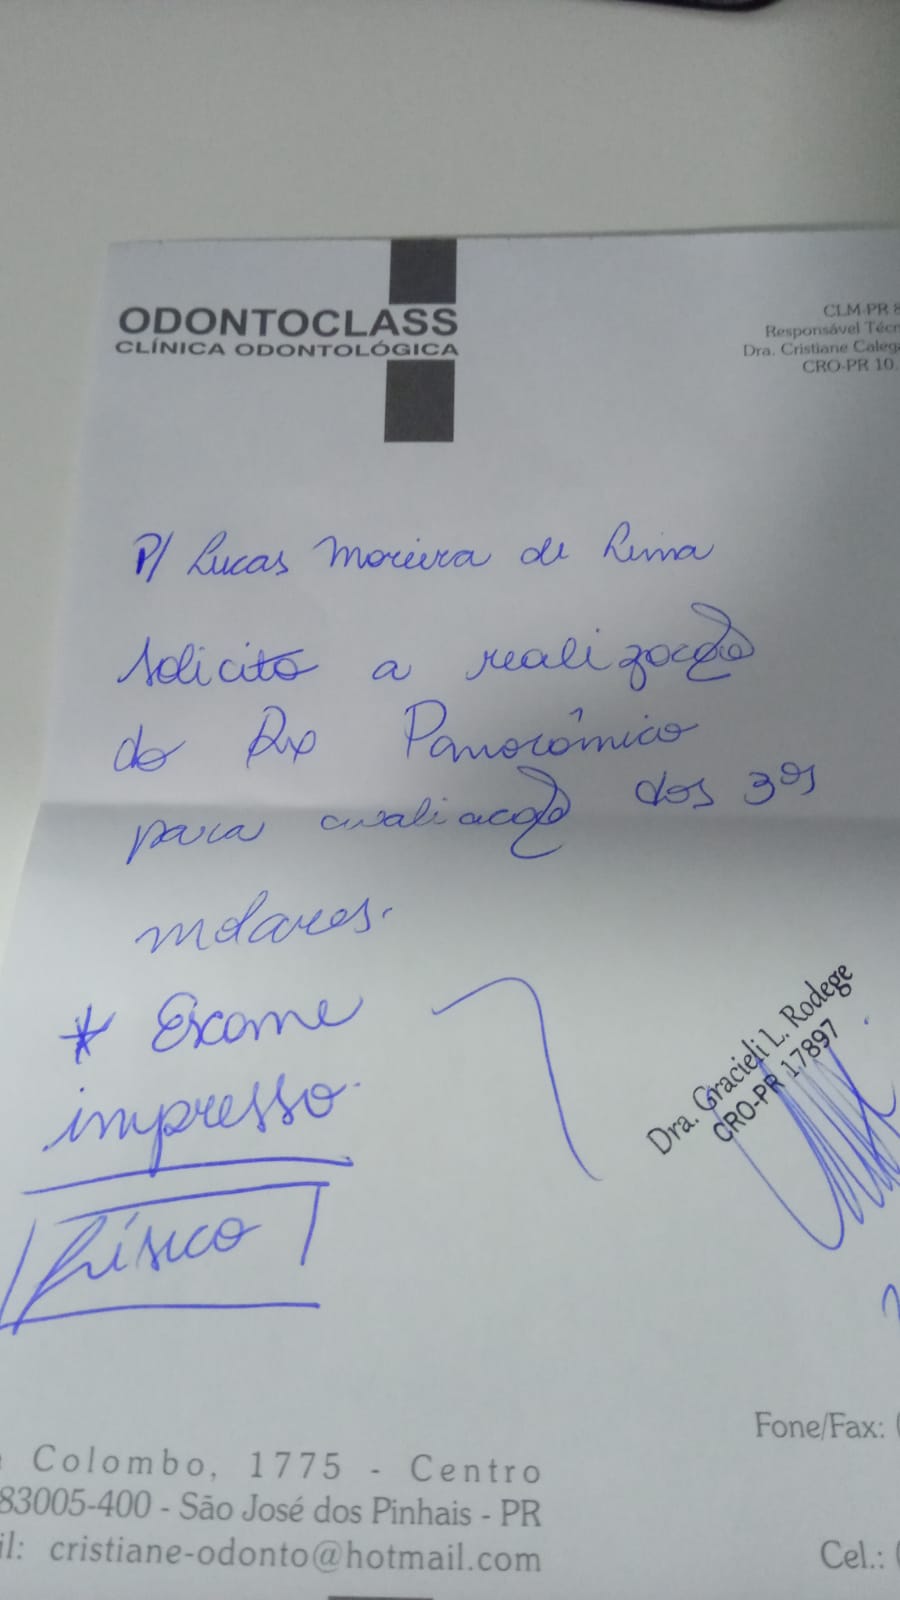 ODONTOCLASS
CLÍNICA ODONTOLÓGICA
CLM-PR 8
Responsável Técn
Dra. Cristiane Calega
CRO-PR 10.
P/ Lucas Moreira de Lima
Solicito a realização
do Rx Panorâmico
para avaliação dos 3ºs
molares.
* Exame
impresso.
físico
Dra. Gracieli L. Rodege
CRO-PR 17897
Colombo, 1775 - Centro
83005-400 - São José dos Pinhais - PR
il: cristiane-odonto@hotmail.com
Fone/Fax: (
Cel.: (